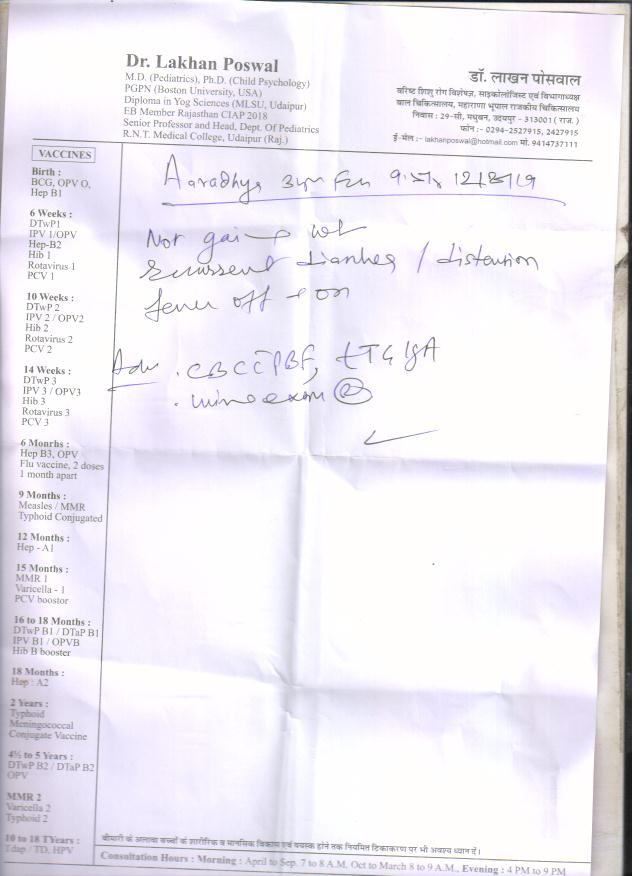 Dr. Lakhan Poswal
M.D. (Pediatrics), Ph.D. (Child Psychology)
PGPN (Boston University, USA)
Diploma in Yog Sciences (MLSU, Udaipur)
EB Member Rajasthan CIAP 2018
Senior Professor and Head, Dept. Of Pediatrics
R.N.T. Medical College, Udaipur (Raj.)
डॉ. लाखन पोसवाल
वरिष्ठ शिशु रोग विशेषज्ञ, साइकोलॉजिस्ट एवं विभागाध्यक्ष
बाल चिकित्सालय, महाराणा भूपाल राजकीय चिकित्सालय
निवास : 29-सी, मधुबन, उदयपुर - 313001 ( राज. )
फोन :- 0294-2527915, 2427915
ई-मेल :- lakhanposwal@hotmail.com मो. 9414737111
VACCINES
Birth :
BCG, OPV O,
Hep B1
6 Weeks :
DTwP1
IPV 1/OPV
Hep-B2
Hib 1
Rotavirus 1
PCV 1
10 Weeks :
DTwP 2
IPV 2 / OPV2
Hib 2
Rotavirus 2
PCV 2
14 Weeks :
DTwP 3
IPV 3 / OPV3
Hib 3
Rotavirus 3
PCV 3
6 Monrhs :
Hep B3, OPV
Flu vaccine, 2 doses
1 month apart
9 Months :
Measles / MMR
Typhoid Conjugated
12 Months :
Hep - A1
15 Months :
MMR 1
Varicella - 1
PCV boostor
16 to 18 Months :
DTwP B1 / DTaP B1
IPV B1 / OPVB
Hib B booster
18 Months :
Hep : A2
2 Years :
Typhoid
Meningococcal
Conjugate Vaccine
4½ to 5 Years :
DTwP B2 / DTaP B2
OPV
MMR 2
Varicella 2
Typhoid 2
10 to 18 TYears :
Tdap / TD, HPV
Aaradhya 12/8/19
Not gain wt
Recurrent diarrhea / distention
fever off + on
Adv . CBC PBF, tTG IgA
. urine exam (R)
बीमारी के अलावा बच्चों के शारीरिक व मानसिक विकास एवं वयस्क होने तक नियमित टिकाकरण पर भी अवश्य ध्यान दें।
Consultation Hours : Morning : April to Sep. 7 to 8 A.M. Oct to March 8 to 9 A.M., Evening : 4 PM to 9 PM